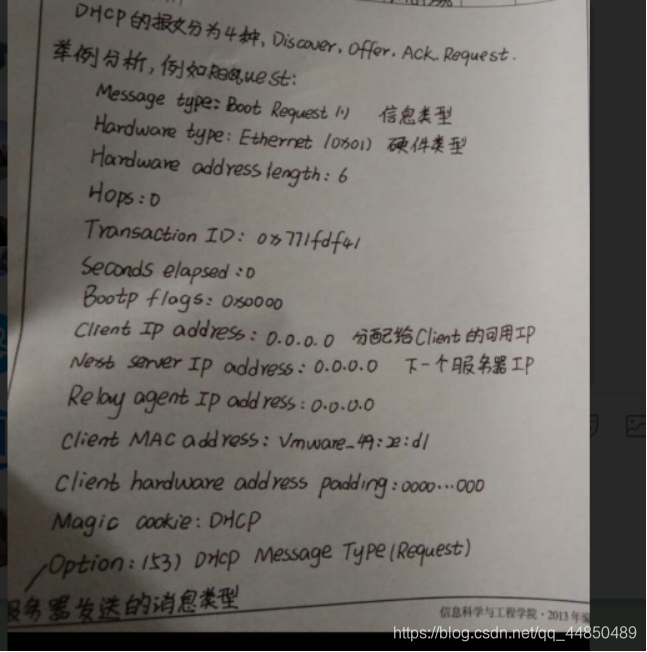 DHCP的报文分为4种、Discover、Offer、Ack、Request.
举例分析,例如Request:
Message type: Boot Request (1) 信息类型
Hardware type: Ethernet (0x01) 硬件类型
Hardware address length: 6
Hops: 0
Transaction ID: 0x771fdf41
Seconds elapsed: 0
Bootp flags: 0x0000
Client IP address: 0.0.0.0 分配给Client的可用IP
Next server IP address: 0.0.0.0 下一个服务器IP
Relay agent IP address: 0.0.0.0
Client MAC address: Vmware_49:2e:d1
Client hardware address padding: 0000...000
Magic cookie: DHCP
Option: (53) DHCP Message Type (Request)
服务器发送的消息类型
信息科学与工程学院·2013年编
https://blog.csdn.net/qq_44850489